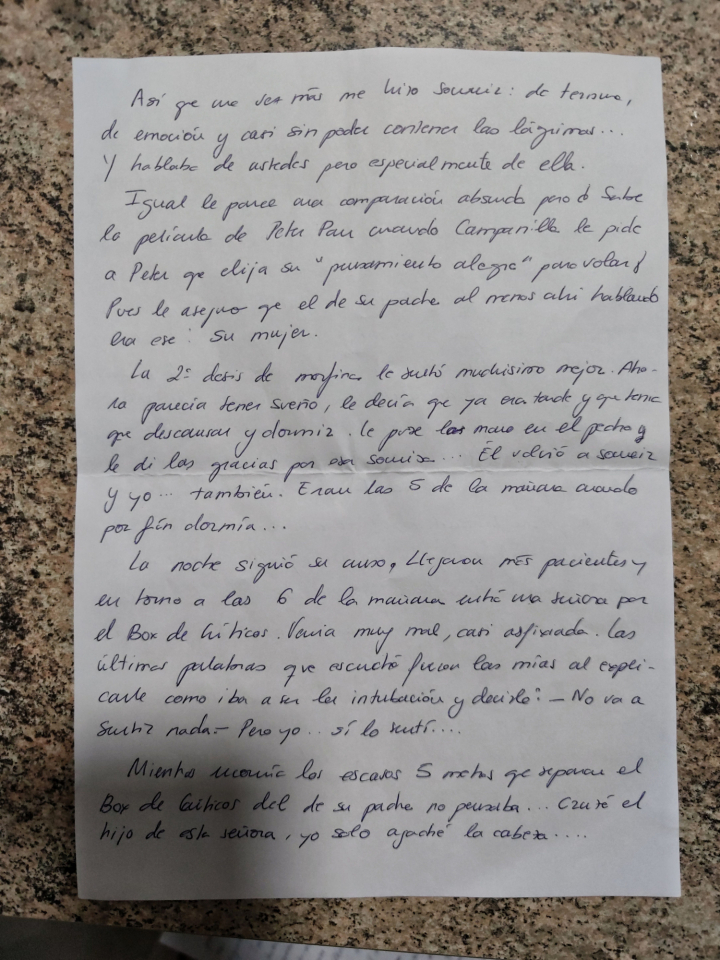 Así que una vez más me hizo sonreir: de ternura,
de emoción y casi sin poder contener las lágrimas...
Y hablaba de ustedes pero especialmente de ella.
Igual le parece una comparación absurda pero ¿ Sabe
la película de Peter Pan cuando Campanilla le pide
a Peter que elija su "pensamiento alegre" para volar?
Pues le aseguro que el de su padre al menos ahí hablando
era ese: su mujer.
La 2ª dosis de morfina le sentó muchísimo mejor. Aho-
ra parecía tener sueño, le decía que ya era tarde y que tenía
que descansar y dormir, le puse la mano en el pecho y
le di las gracias por esa sonrisa... Él volvió a sonreir
y yo... también. Eran las 5 de la mañana cuando
por fin dormía...
La noche siguió su curso, llegaron más pacientes y
en torno a las 6 de la mañana entró una señora por
el Box de Críticos. Venía muy mal, casi asfixiada. Las
últimas palabras que escuchó fueron las mías al expli-
carle como iba a ser la intubación y decirle: - No va a
sentir nada.- Pero yo... sí lo sentí....
Mientras recorría los escasos 5 metros que separan el
Box de Críticos del de su padre no pensaba... Crucé el
hijo de esta señora, yo solo agaché la cabeza....